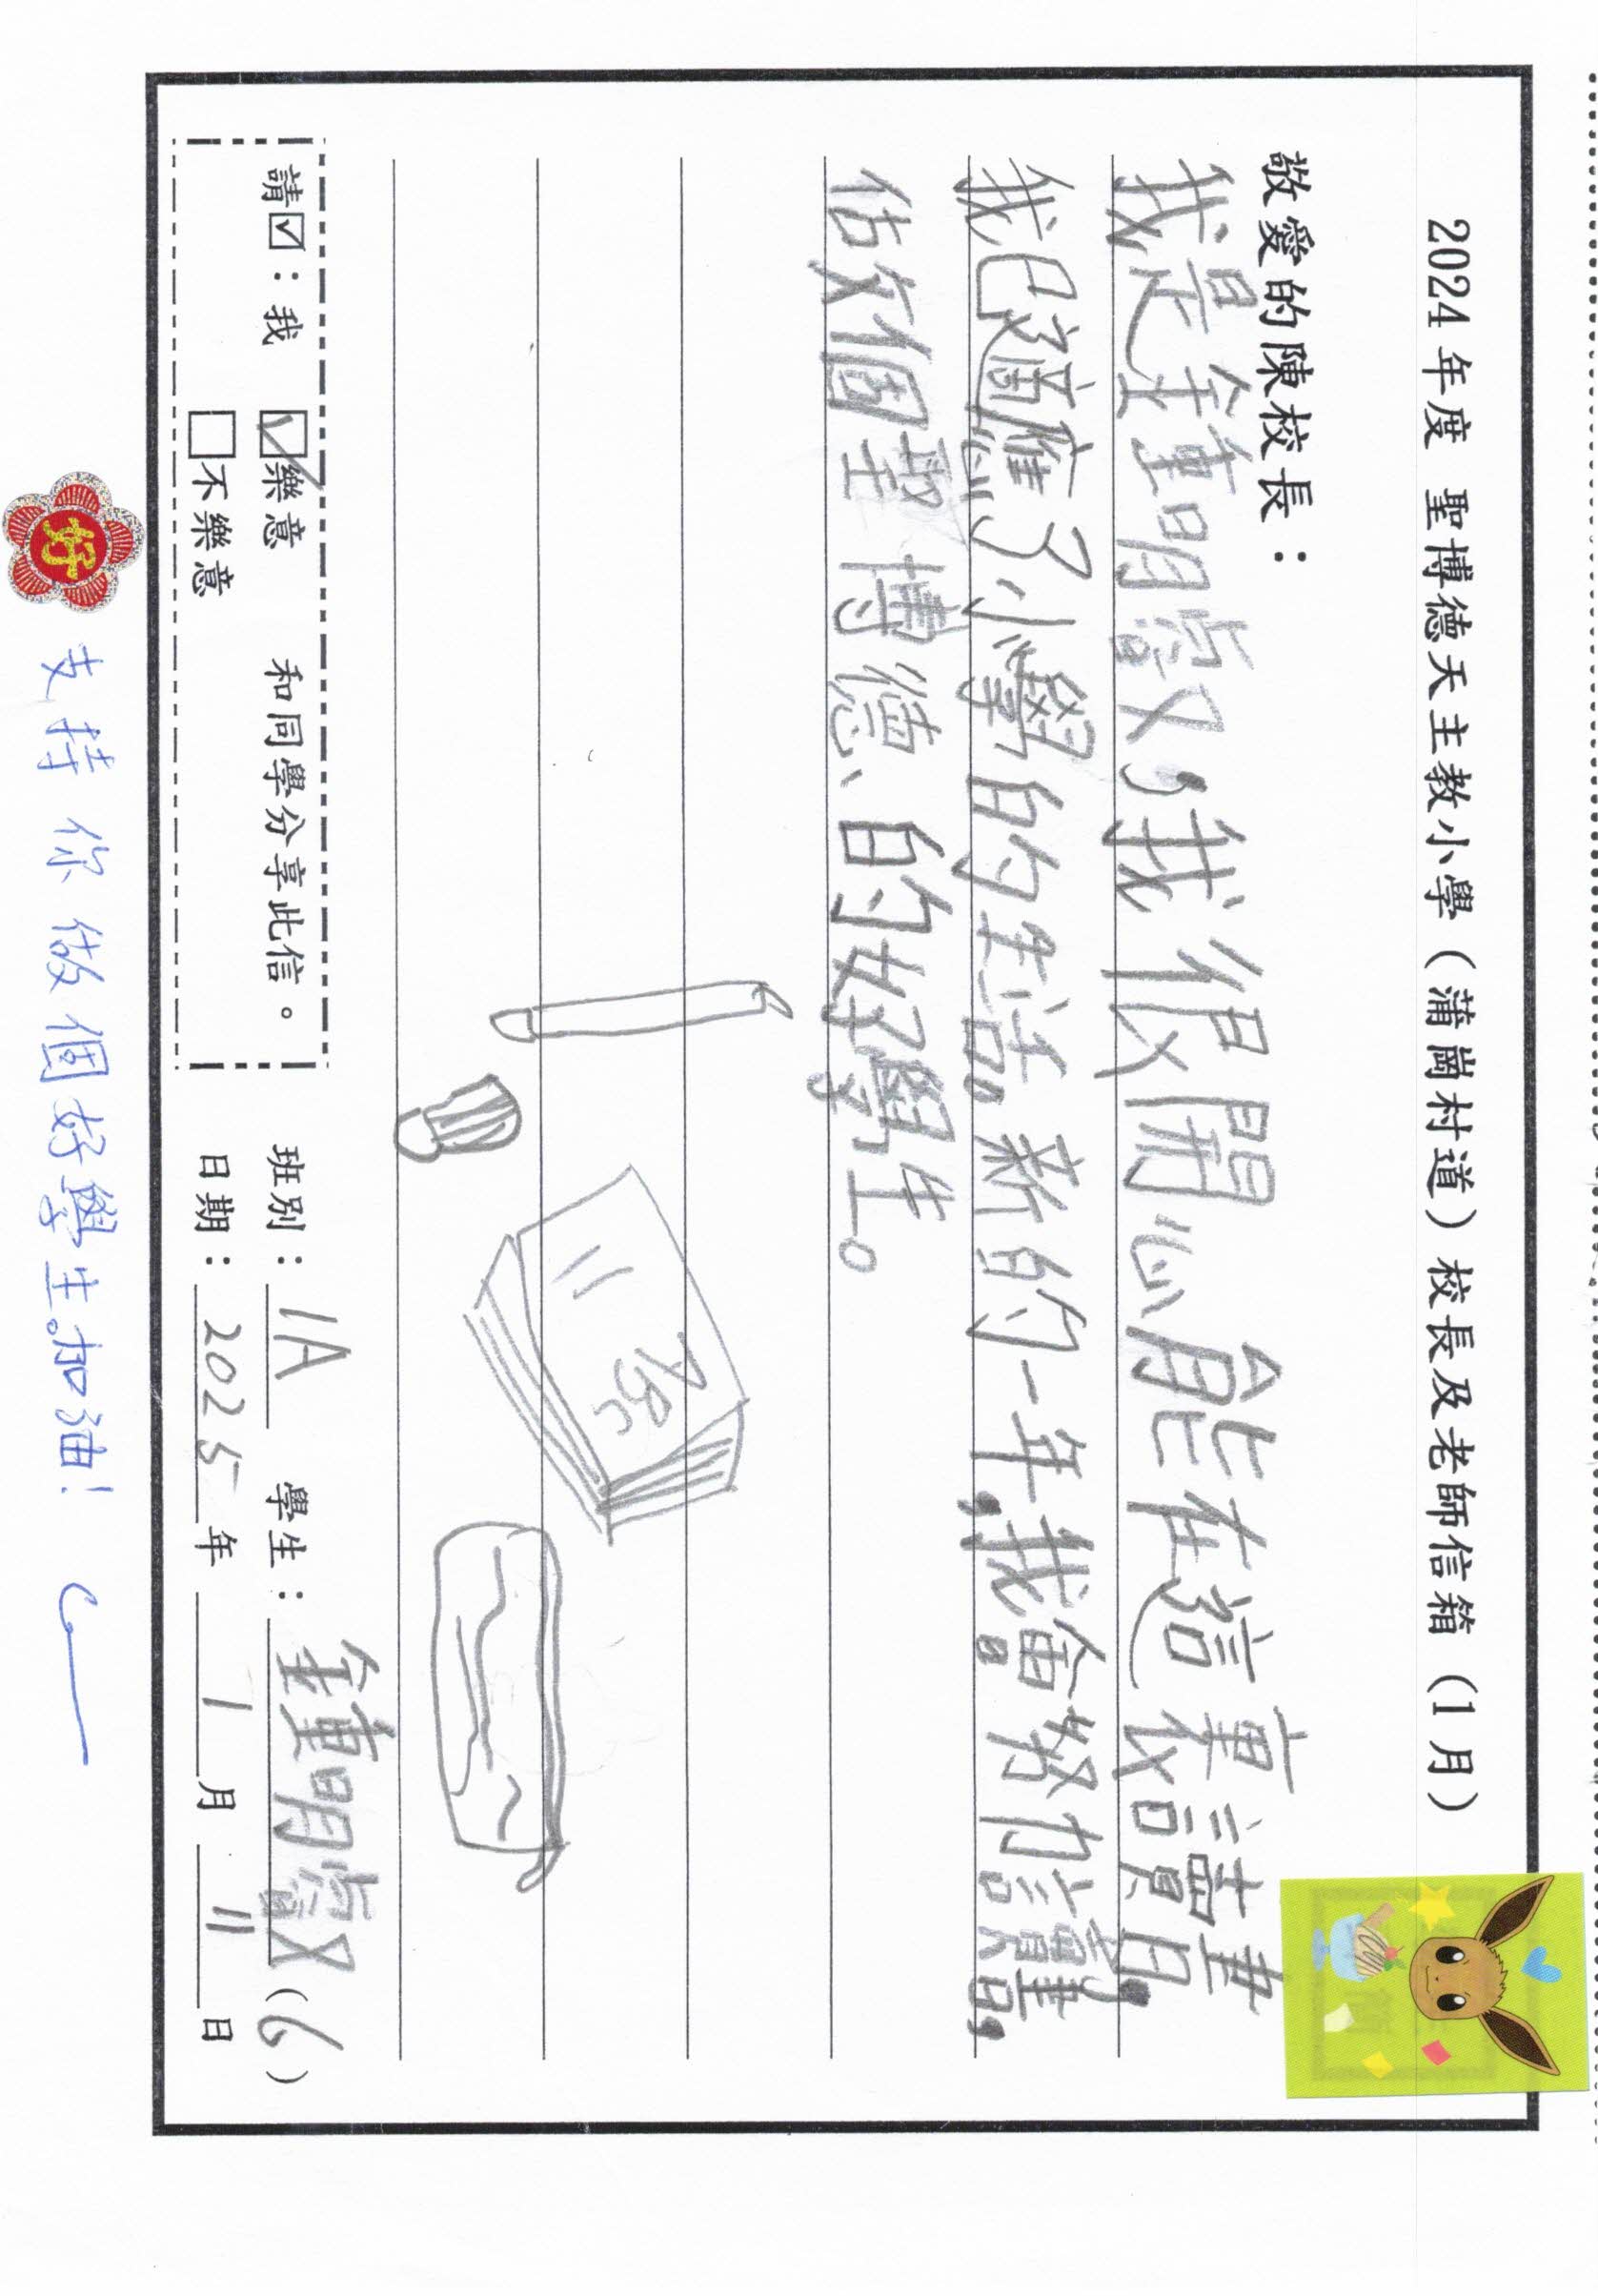 2024年度 聖博德天主教小學（蒲崗村道）校長及老師信箱（1月）
敬愛的陳校長：
我是鍾明叡，我很開心能在這裏讀書，
我已適應了小學的生活。新的一年，我會努力讀書，
做個聖博德的好學生。
ABC
請☑：我 ☑樂意 和同學分享此信。
□不樂意
班別：1A 學生：鍾明叡（6）
日期：2025年1月11日
好
支持你做個好學生。加油！